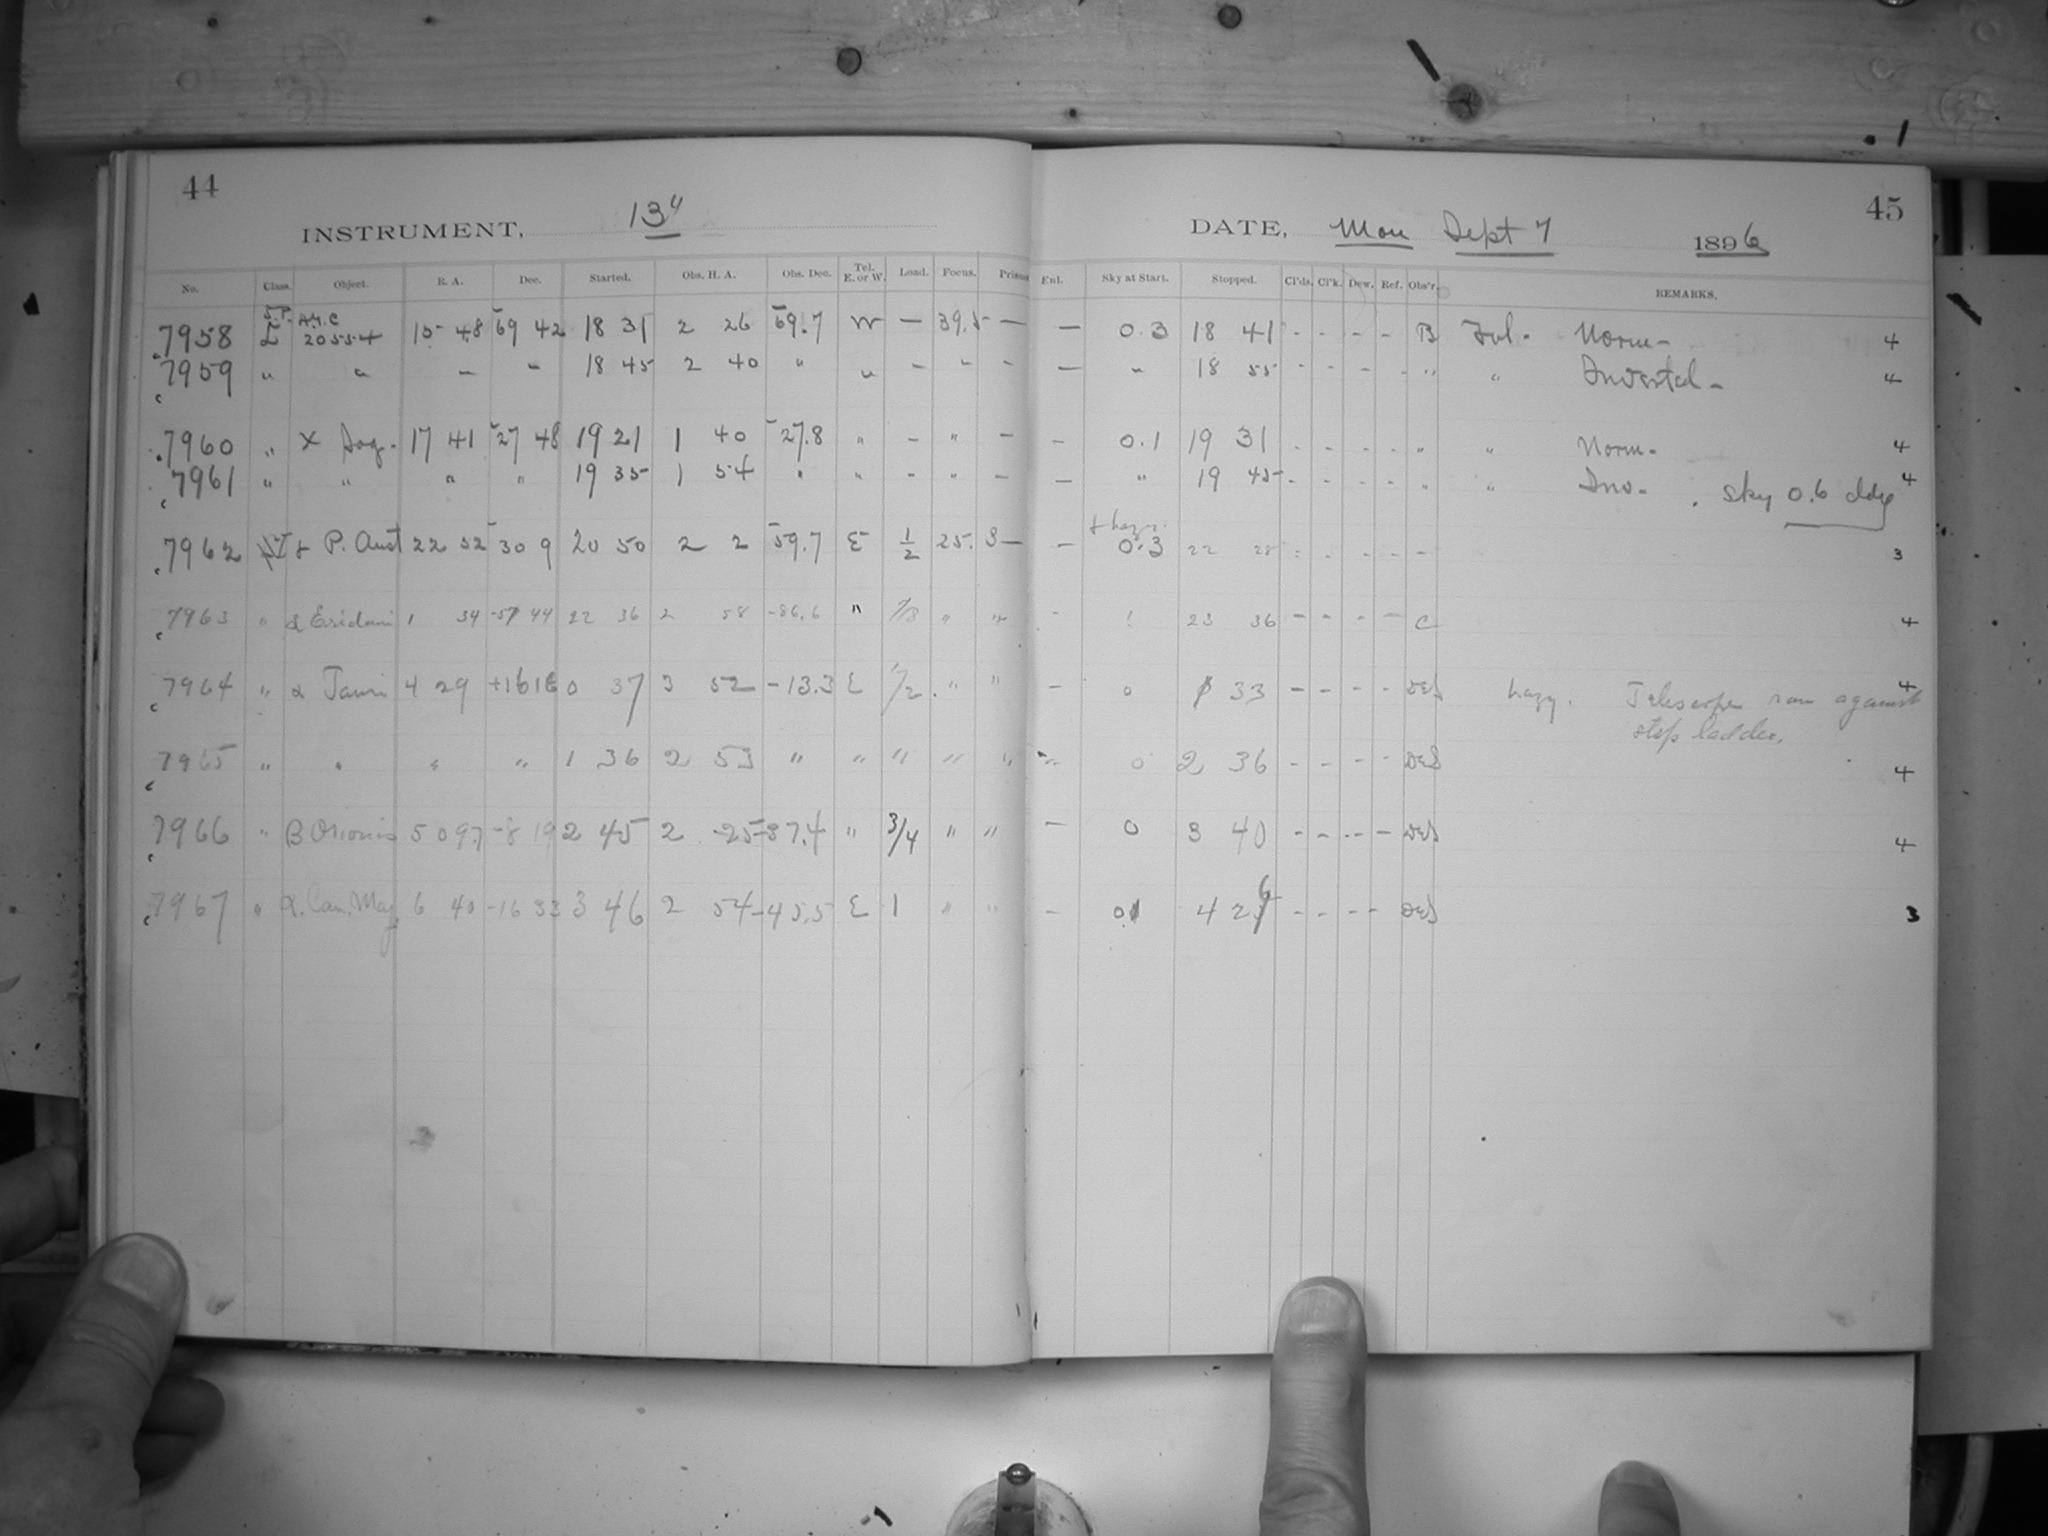 44
INSTRUMENT, 13"
No. Class. Object. R. A. Dec. Started. Obs. H. A. Obs. Dec. Tel. E. or W. Load. Focus. Prisms
7958 S.P. L A.G.C 20554 15 48 -69 42 18 31 2 26 -69.7 W — 39.5 —
7959 " " " " 18 45 2 40 " " - " -
7960 " X Sag. 17 41 -27 48 19 21 1 40 -27.8 " - " -
7961 " " " " 19 35 1 54 " " - " -
7962 P. Aust 22 52 -30 9 20 50 2 2 -59.7 E 1/2 25. 3 —
7963 " α Eridani 1 34 -57 44 22 36 2 58 -86.6 " " "
7964 " α Tauri 4 29 +16 18 0 37 3 52 -13.3 E 1/2 " "
7965 " " " " 1 36 2 53 " " " " "
7966 " B Orionis 5 09.7 -8 19 2 45 2 25 -37.4 " 3/4 " "
7967 " α. Can. Maj. 6 40 -16 33 3 46 2 54 -45.5 E 1 " "
45
DATE, Mon Sept 7 1896
Enl. Sky at Start. Stopped. Cl'ds. Cl'k. Dew. Ref. Obs'r. REMARKS.
— 0.3 18 41 - - - - B Norm- 4
— " 18 55 - - - - " " Inverted - 4
- 0.1 19 31 - - - - " " Norm- 4
— " 19 45 - - - - " " Inv- . Sky 0.6 cldy 4
- 0.3 22 28 - - - - - 3
- 23 36 - - - - C 4
— 0 1 33 - - - - DES hazy. Telescope ran against 4
step ladder.
" 0 2 36 - - - - DES 4
— 0 3 40 - - - - DES 4
- 01 4 26 - - - - DES 3